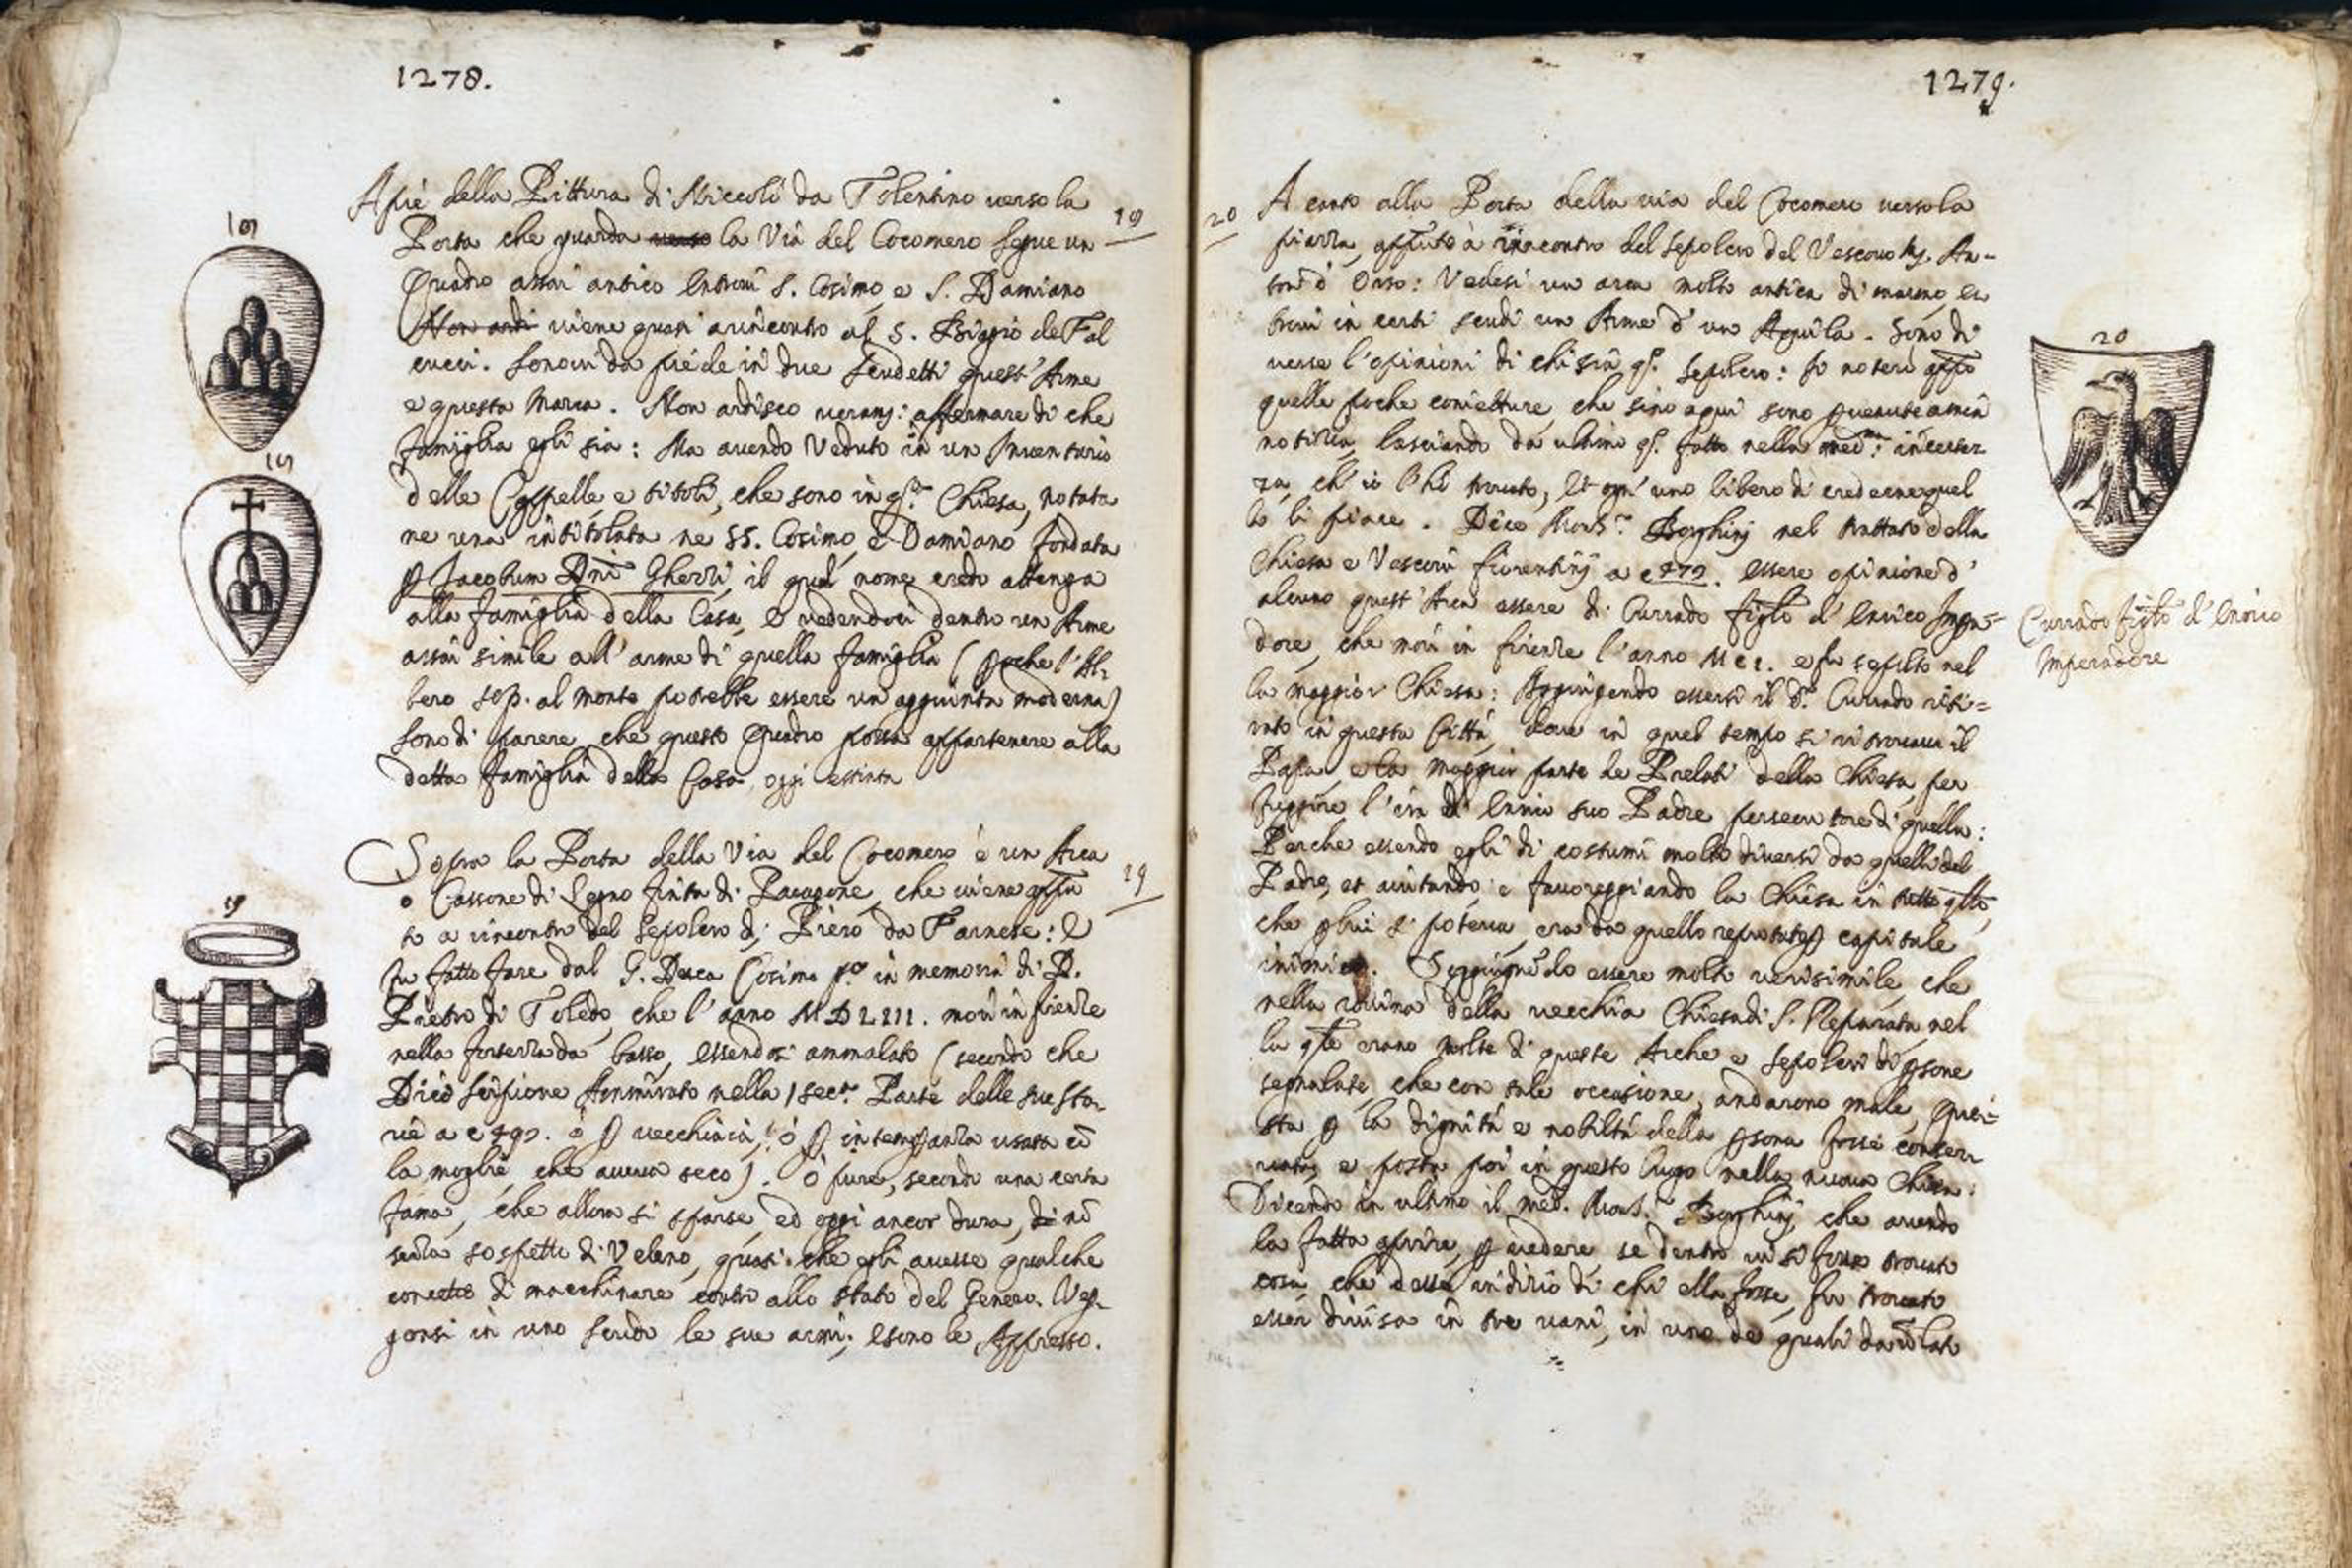 1278.
Apiè della Pittura di Niccolò da Tolentino verso la
Porta che guarda verso la Via del Cocomero segue un
Quadro assai antico entrovi S. Cosimo e S. Damiano
Non ardi viene quasi arincontro al S. Biagio de Fal
cucci. Sonovi da piede in due scudetti quest' Arme
e questa Marca. Non ardisco affermare di che
famiglia egli sia: Ma avendo Veduto in un Inventario
delle Cappelle e titoli, che sono in qsta. Chiesa, notata
ne una intitolata ne SS. Cosimo e Damiano fondata
p Jacobum Dni Gherri, il qual nome credo attenga
alla famiglia della Casa, e vedendovi dentro un Arme
assai simile all' arme di quella famiglia (pche l' Al,
bero sop. al monte potrebbe essere un aggiunta moderna)
sono di parere che questo Quadro possa appartenere alla
detta famiglia della Casa oggi estinta
18
18
18
Sopra la Porta della Via del Cocomero è un Arca
o Cassone di Legno finta di Paragone, che viene appū
to a rincontro del Sepolcro di Piero da Farnese: e
fu fatto fare dal G. Duca Cosimo po. in memoria di D.
Pietro di Toledo, che l' anno MDLIII. morì in firenze
nella fortezza da basso, essendosi ammalato (secondo che
Dice Scipione Ammirato nella secda. Parte delle sue sto,
rie a c 497. ò p vecchiaia, ò p intempanza usata cō
la moglie, che aveva seco). O pure, secondo una certa
fama, che allora si sparse, ed oggi ancor dura, di nō
senza sospetto di Veleno, quasi che egli avesse qualche
concetto di macchinare contro allo stato del Genero. Veg,
gonsi in uno scudo le sue armi; e sono le Appresso.
19
19
1279.
20
A canto alla Porta della via del Cocomero verso la
piazza, appūto à rincontro del sepolcro del Vescovo An-
ton d' Orso: Vedesi un arca molto antica di marmo, en
trovi in certi scudi un Arme d' un Aquila. Sono di
verse l' opinioni di chi sia qo. Sepolcro: Io noterò appo
quelle poche conietture che sino a qui sono pvenute a mia
notizia, lasciando da ultimo qo. fatto nella meda. incertez
za, ch' io l' hò trovato, et ogn' uno libero di crederne quel
lo li piace. Dice Monsr. Borghinj nel trattato della
Chiesa e Vescovi fiorentinj a c 479. essere opinione d'
alcuno quest' Arca essere di Currado figlo d' Enrico Impa=
dore, che morì in firenze l' anno MCI. e fu sepolto nel
la maggior Chiesa: Aggiugendo essersi il do. Currado riti=
rato in questa Città, dove in quel tempo si ritrovava il
Papa, e la maggior parte de Prelati della Chiesa, per
fuggire l' ira di Enrico suo Padre persecutore di quella:
Perche essendo egli di costumi molto diversi da quelli del
Padre, et aiutando, e favoreggiando la Chiesa in tutto qllo,
che p lui si poteva, era da quello reputato p capitale
inimico. Soggiugnēdo essere molto verisimile, che
nella rovina della vecchia Chiesa di S. Reparata, nel
la qle erano molte di queste Arche e Sepolcri di psone
segnalate, che con tale occasione, andarono male, que=
sta p la dignità e nobiltà della psona fosse conser
vata, e posta poi in questo luogo nella nuova Chiesa:
Dicendo in ultimo il med. Monsr. Borghinj, che avendo
la fatta aprire, p vedere, se dentro vi si fosse trovato
cosa, che desse indizio di chi ella fosse, fu trovato
esser divisa in tre vani, in uno de quali da ū lato
20
Currado figlo d' Enrico
Imperadore